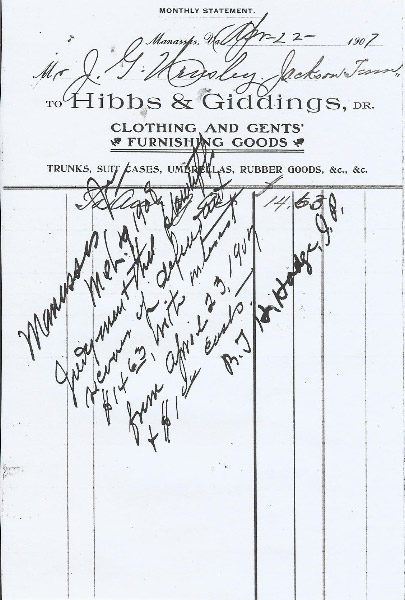 MONTHLY STATEMENT.
Manassas, Va. Apr-22- 1907
Mr J. G. Jackson Tenn,
TO HIBBS & GIDDINGS, DR.
CLOTHING AND GENTS'
FURNISHING GOODS
TRUNKS, SUIT CASES, UMBRELLAS, RUBBER GOODS, &c., &c.
To 14.63
Manassas Va
Mch 19 1908
Judgment that plaintiff
recover of defendant
$14.63, with interest
from April 23, 1907
+ $1 costs
H. Hodge, J.P.